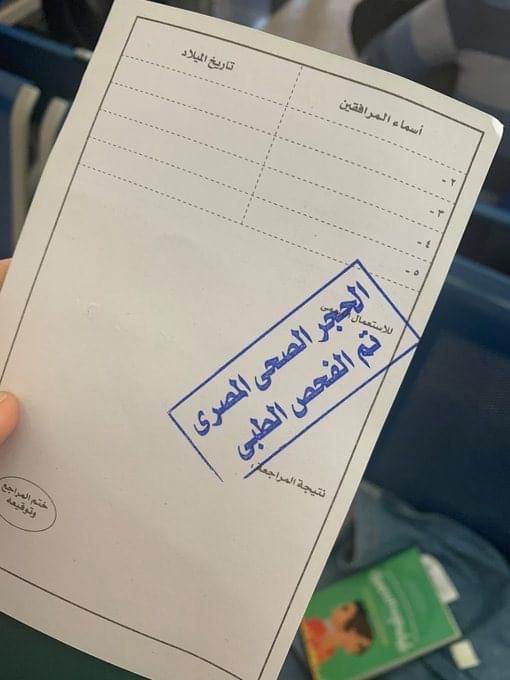 أسماء المرافقين تاريخ الميلاد
٢ -
٣ -
٤ -
٥ -
للاستعمال
الحجر الصحى المصرى
تم الفحص الطبى
نتيجة المراجعة :
ختم المراجع
وتوقيعه